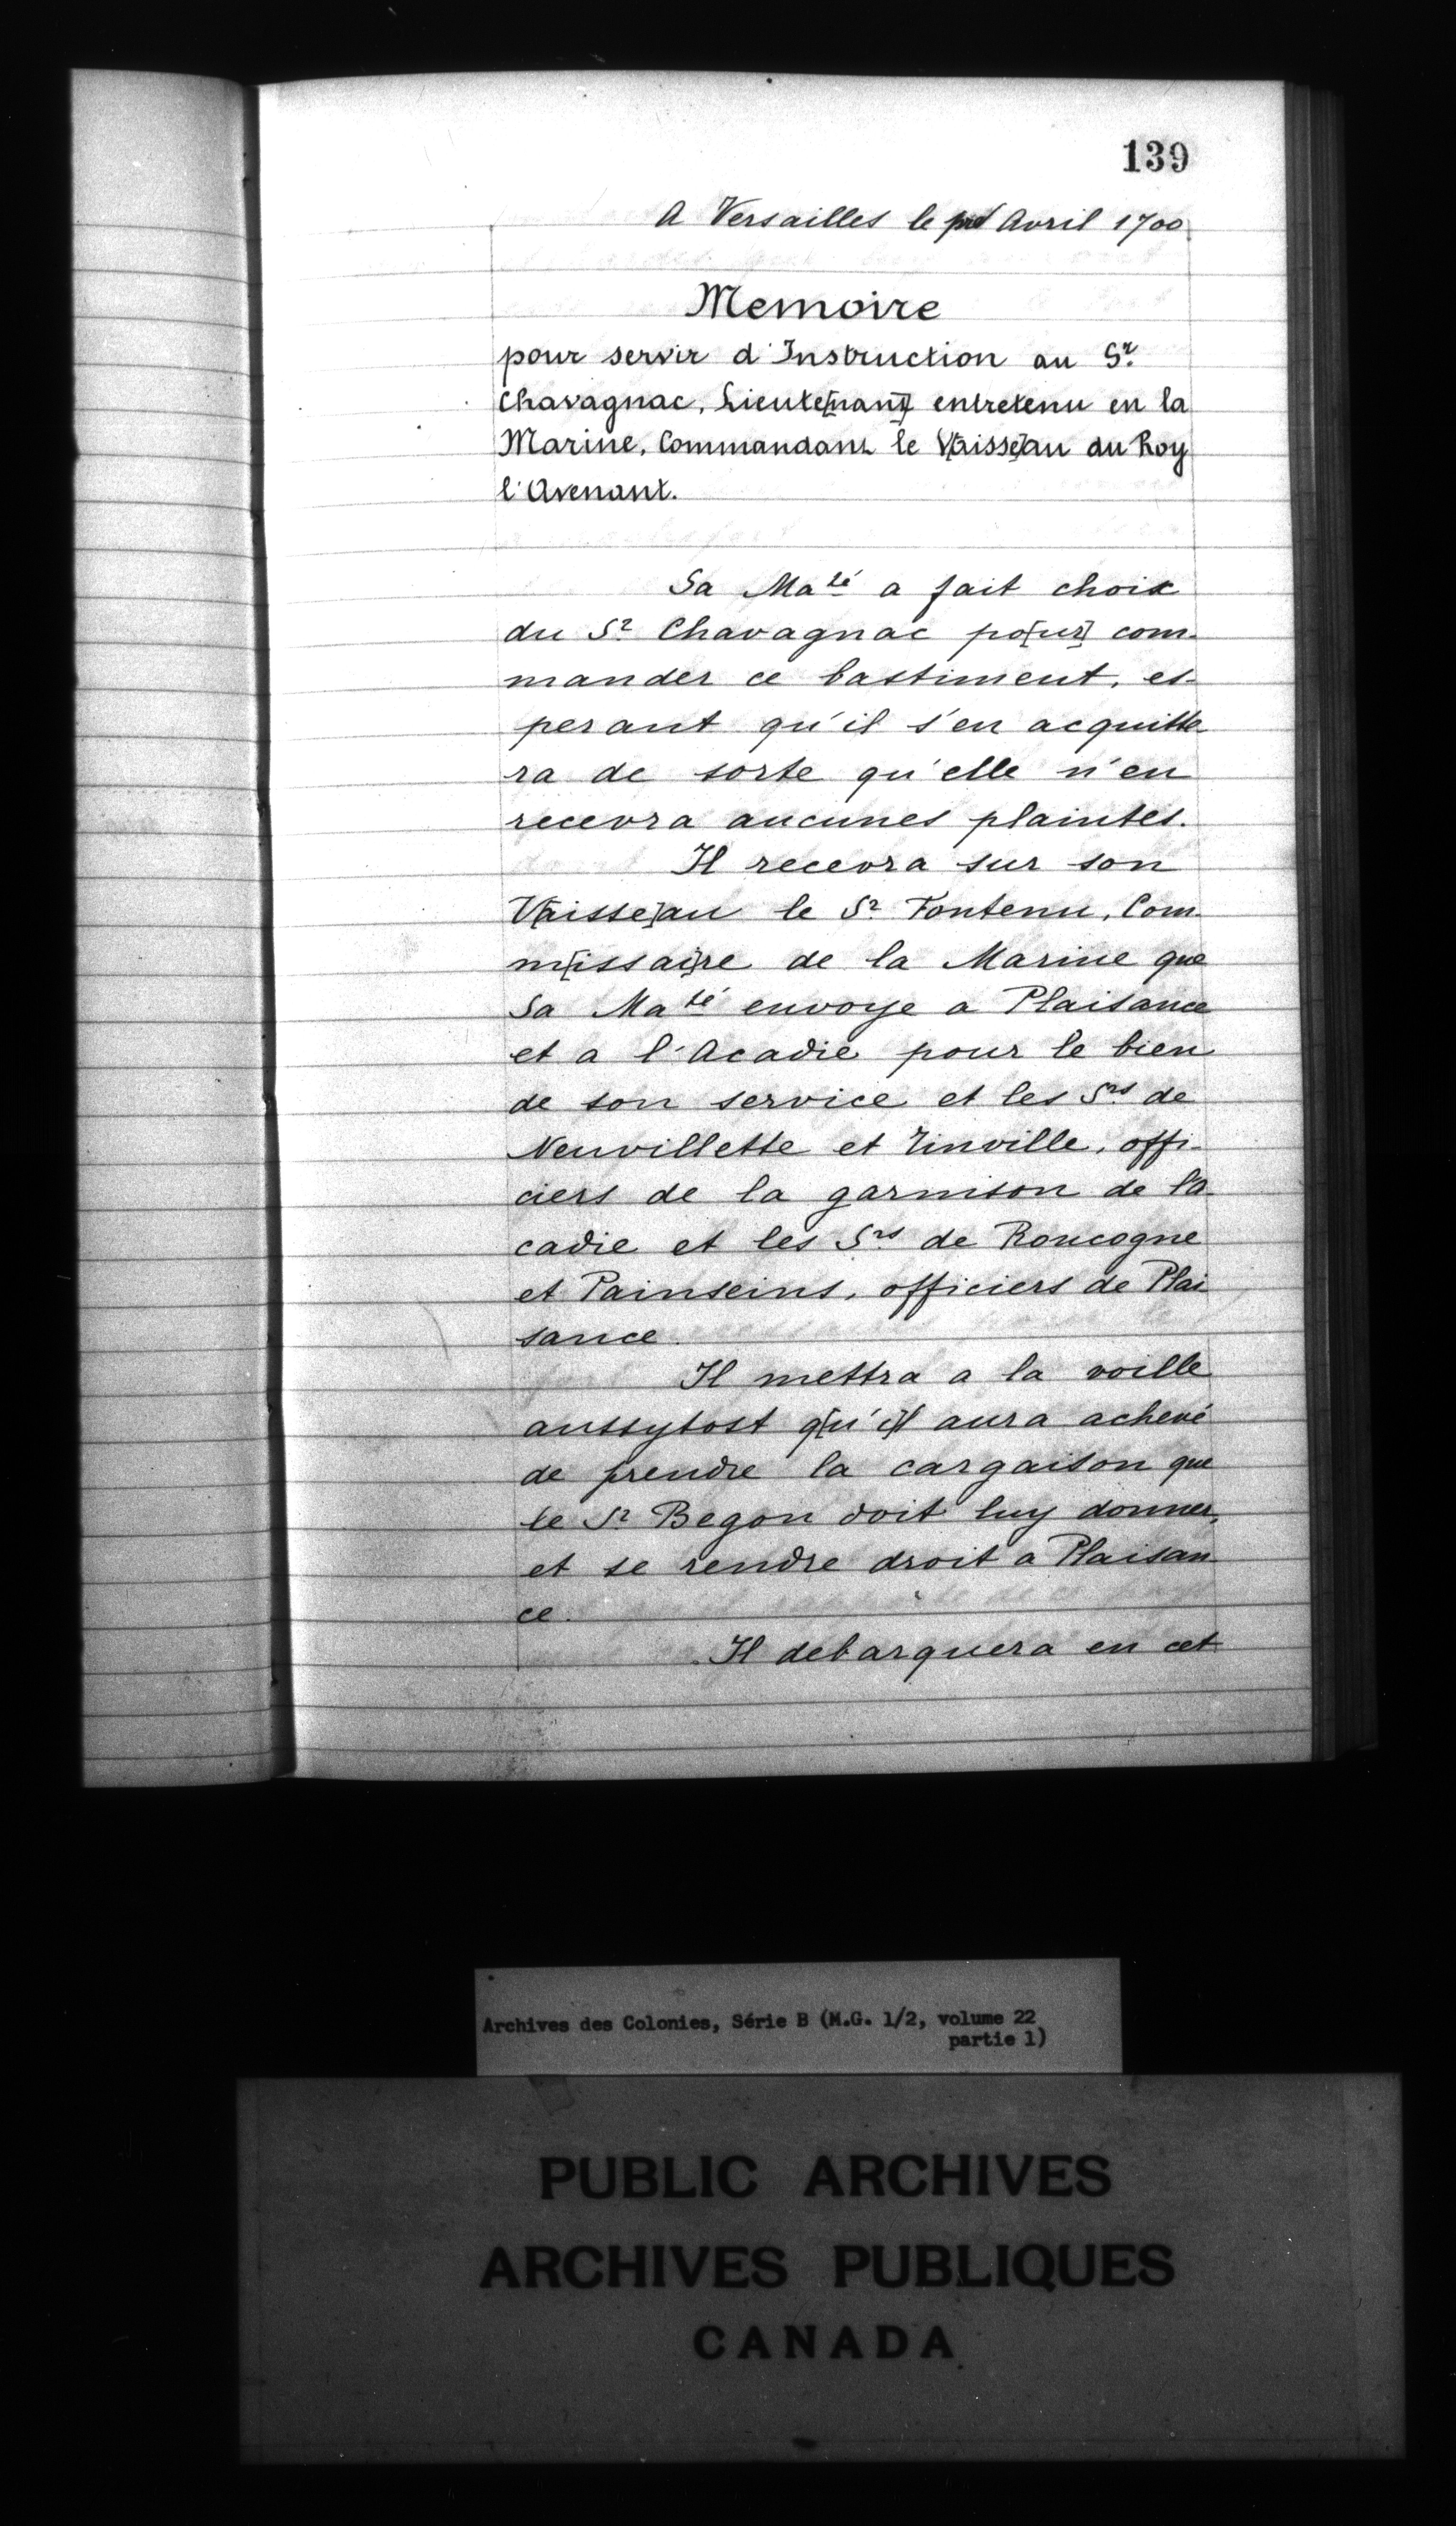 139
A Versailles le pre͏r Avril 1700
Memoire
pour servir d'Instruction au Sr
Chavagnac, Lieute[nant] entretenu en la
Marine, Commandant le V[aisse]au du Roy
l'Avenant.
Sa Maté a fait choix
du Sr Chavagnac po[ur] com-
mander ce bastiment, es-
perant qu'il s'en acquitte
ra de sorte qu'elle n'en
recevra aucunes plaintes.
Il recevra sur son
V[aisse]au le Sr Fontenu, Com-
m[issai]re de la Marine que
Sa Maté envoye a Plaisance
et a l'Acadie pour le bien
de son service et les Srs de
Neuvillette et Tinville, offi-
ciers de la garnison de l'a-
cadie et les Srs de Roucogne
et Painseins, officiers de Plai
sance.
Il mettra a la voille
aussytost q[u'i]l aura achevé
de prendre la cargaison que
le Sr Begon doit luy donner,
et se rendre droit a Plaisan
ce.
Il debarquera en cet
Archives des Colonies, Série B (M.G. 1/2, volume 22
partie 1)
PUBLIC ARCHIVES
ARCHIVES PUBLIQUES
CANADA